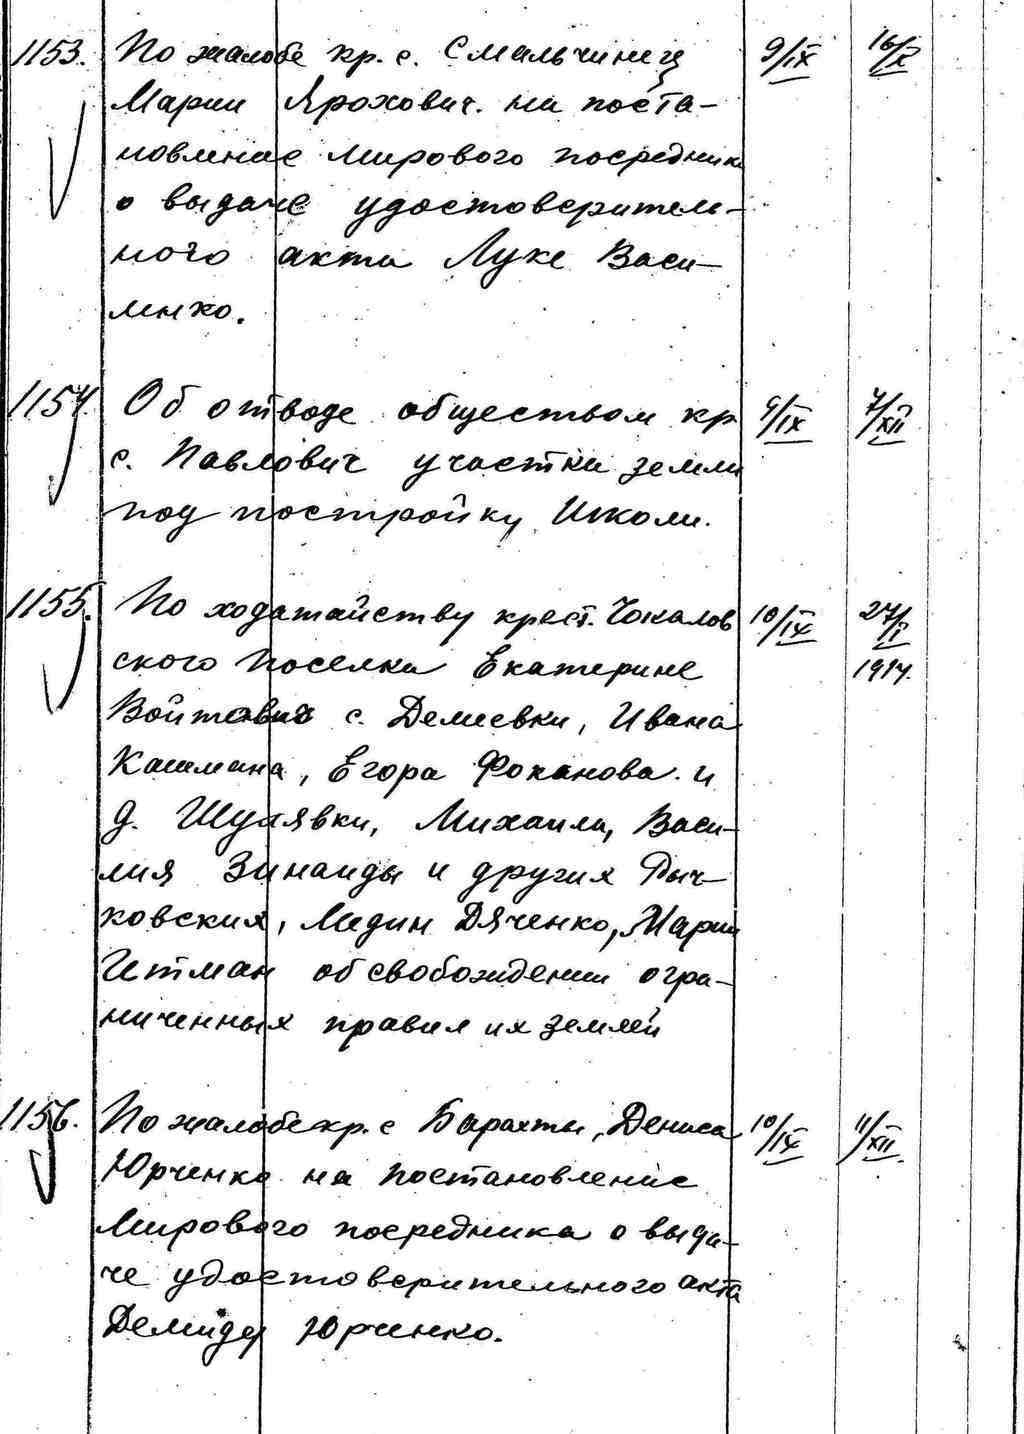 1153. По жалобе кр. с. Смальчинец 9/IX 16/X
Марии Ярохович. на поста-
новление мирового посредника
о выдаче удостоверитель-
ного акта Луке Васи-
ленко.
1154. Об отводе обществом кр 9/IX 7/XII
с. Павлович участка земли
под постройку Школи.
1155. По ходатайству крест. Чокалов 10/IX 27/II
ского поселка Екатерине 1914.
Войтович с. Демиевки, Ивана
Кашмана, Егора Фоканова. и
д. Шулявки, Михаила, Васи-
лия Зинаиды и других Рыч-
ковских, Лидии Дяченко, Марии
Гетман об свобождении огра-
ниченных правил их землей
1156. По жалобе кр. с Барахты, Дениса 10/IX 11/XII.
Юрченко на постановление
Мирового посредника о выда-
че удостоверительного акта
Демиду Юрченко.